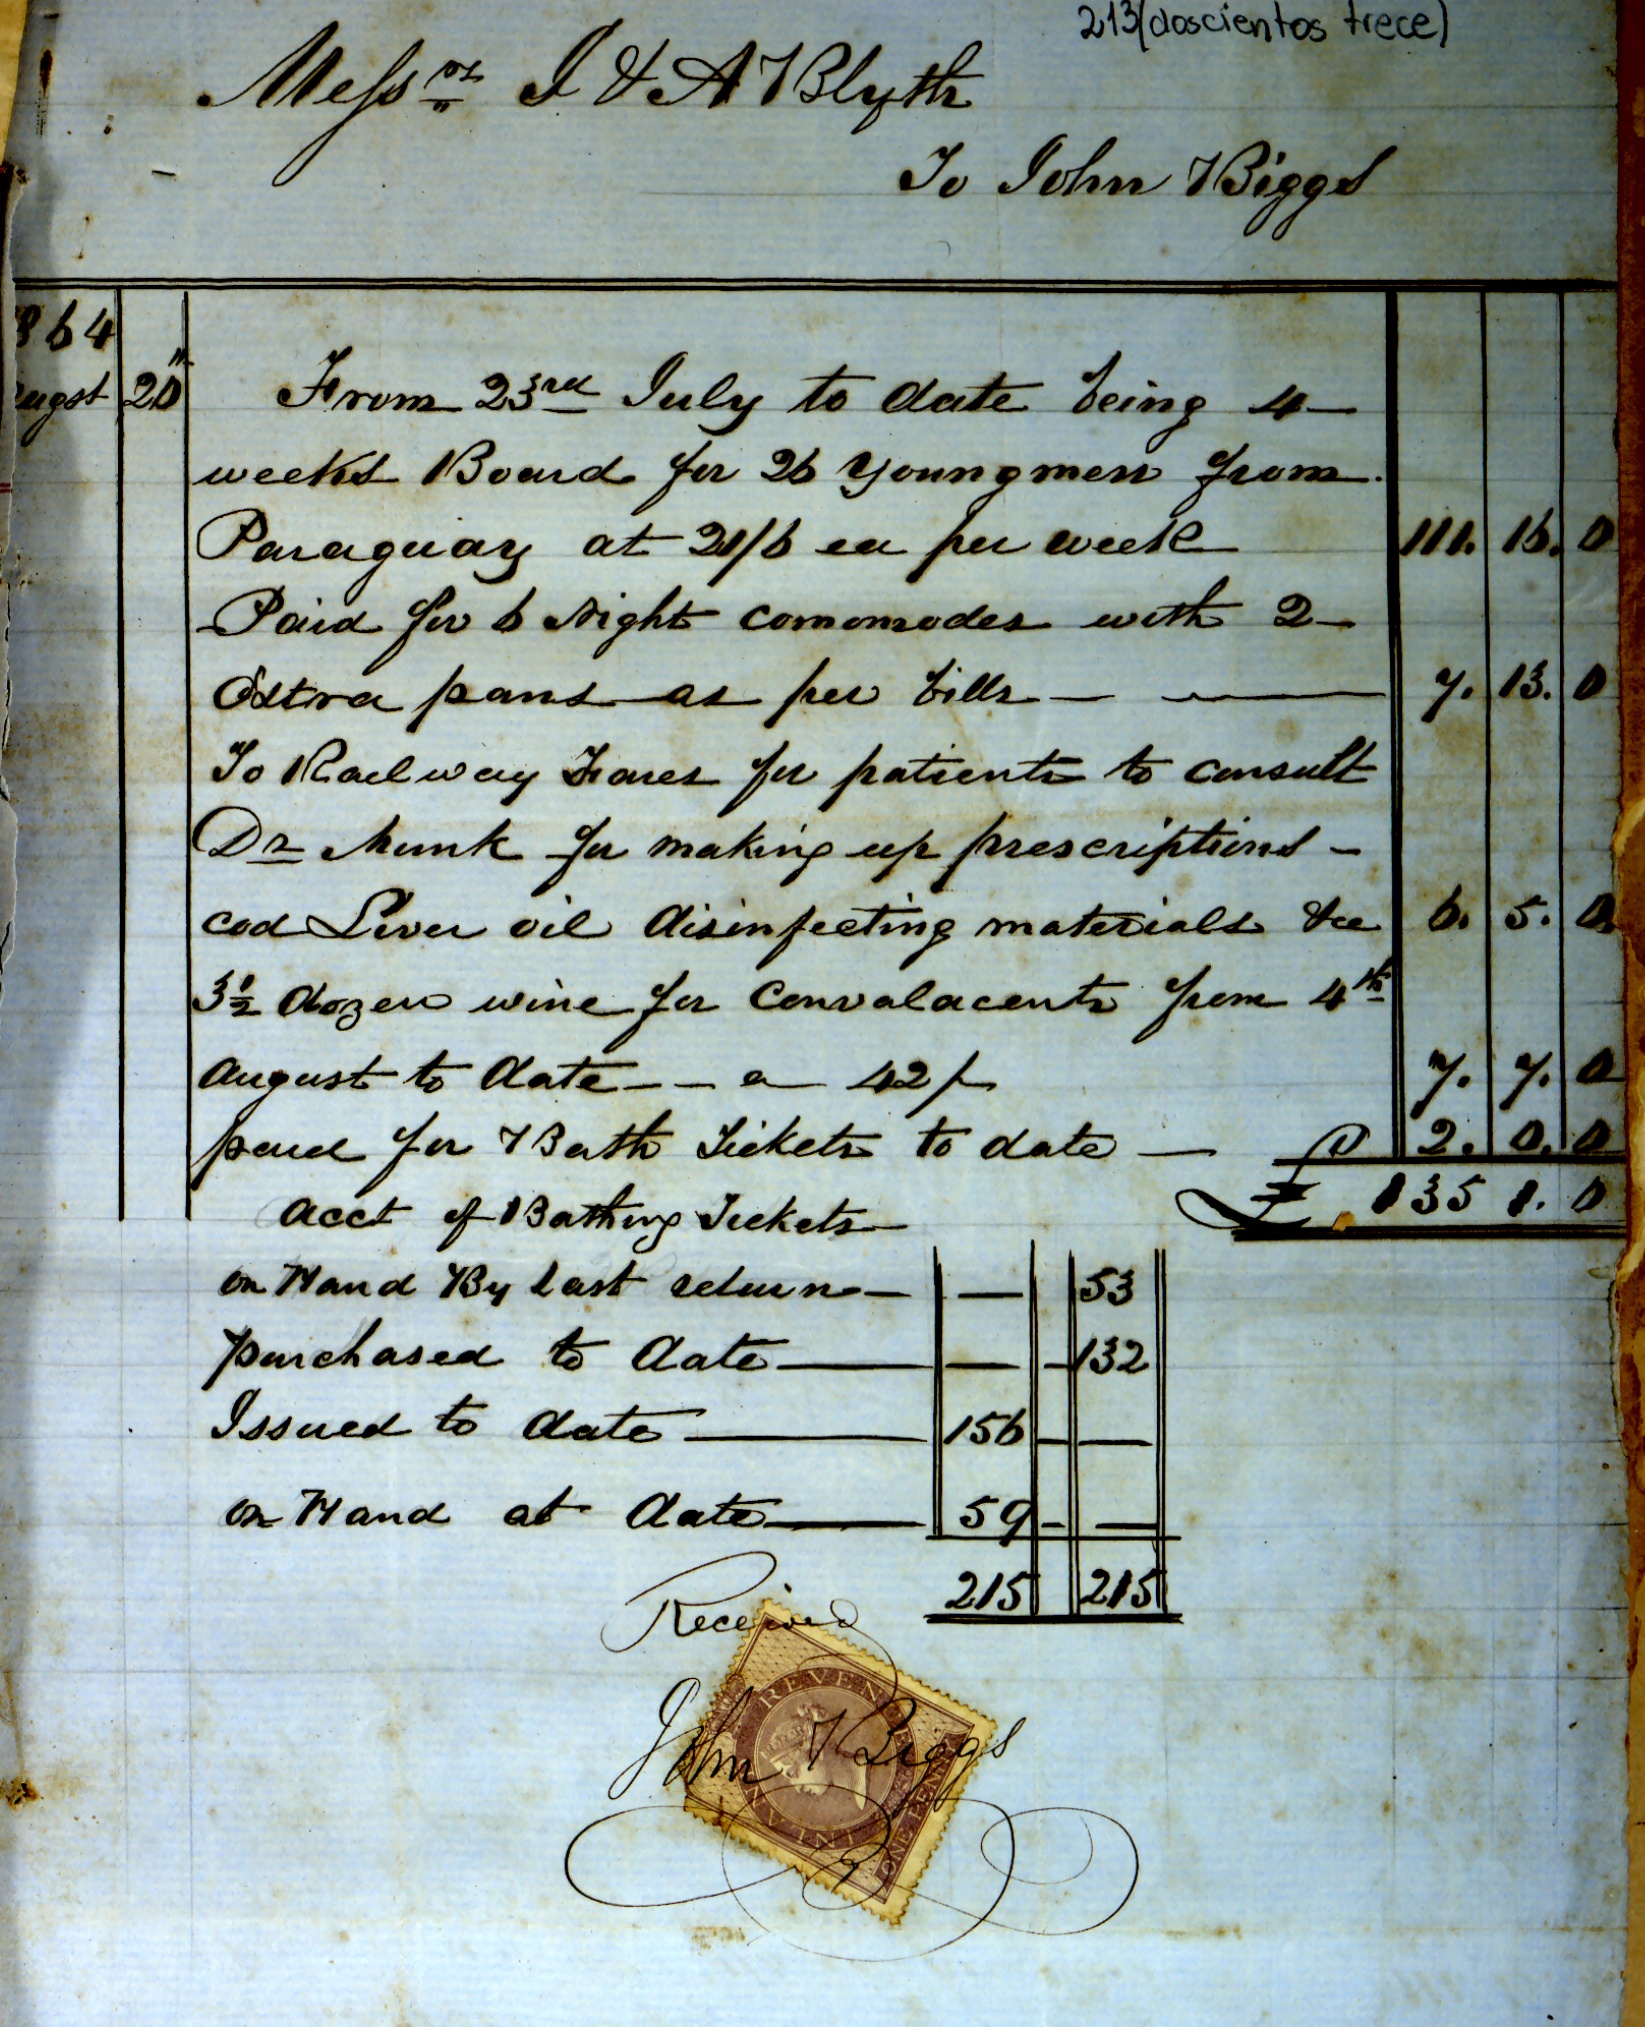 213 (doscientos trece)
Messrs J & A Blyth
To John Biggs
864
ugst 20 From 23rd July to date being 4
weeks Board for 26 Youngmen from
Paraguay at 21/6 ea per week 111. 16. 0
Paid for 6 Night commodes with 2
Extra pans as per bills 7. 13. 0
To Railway Fares for patients to consult
Dr Munk for making up prescriptions
cod Liver oil disinfecting materials &c 6. 5. 0
3½ dozen wine for Convalacents from 4th
August to date a 42/ 7. 7. 0
paid for Bath Tickets to date 2. 0. 0
£ 135 1. 0
acct of Bathing Tickets
on Hand By last return 53
purchased to date 132
Issued to date 156
on Hand at date 59
215 215
Received
INLAND REVENUE
ONE PENNY
John Biggs